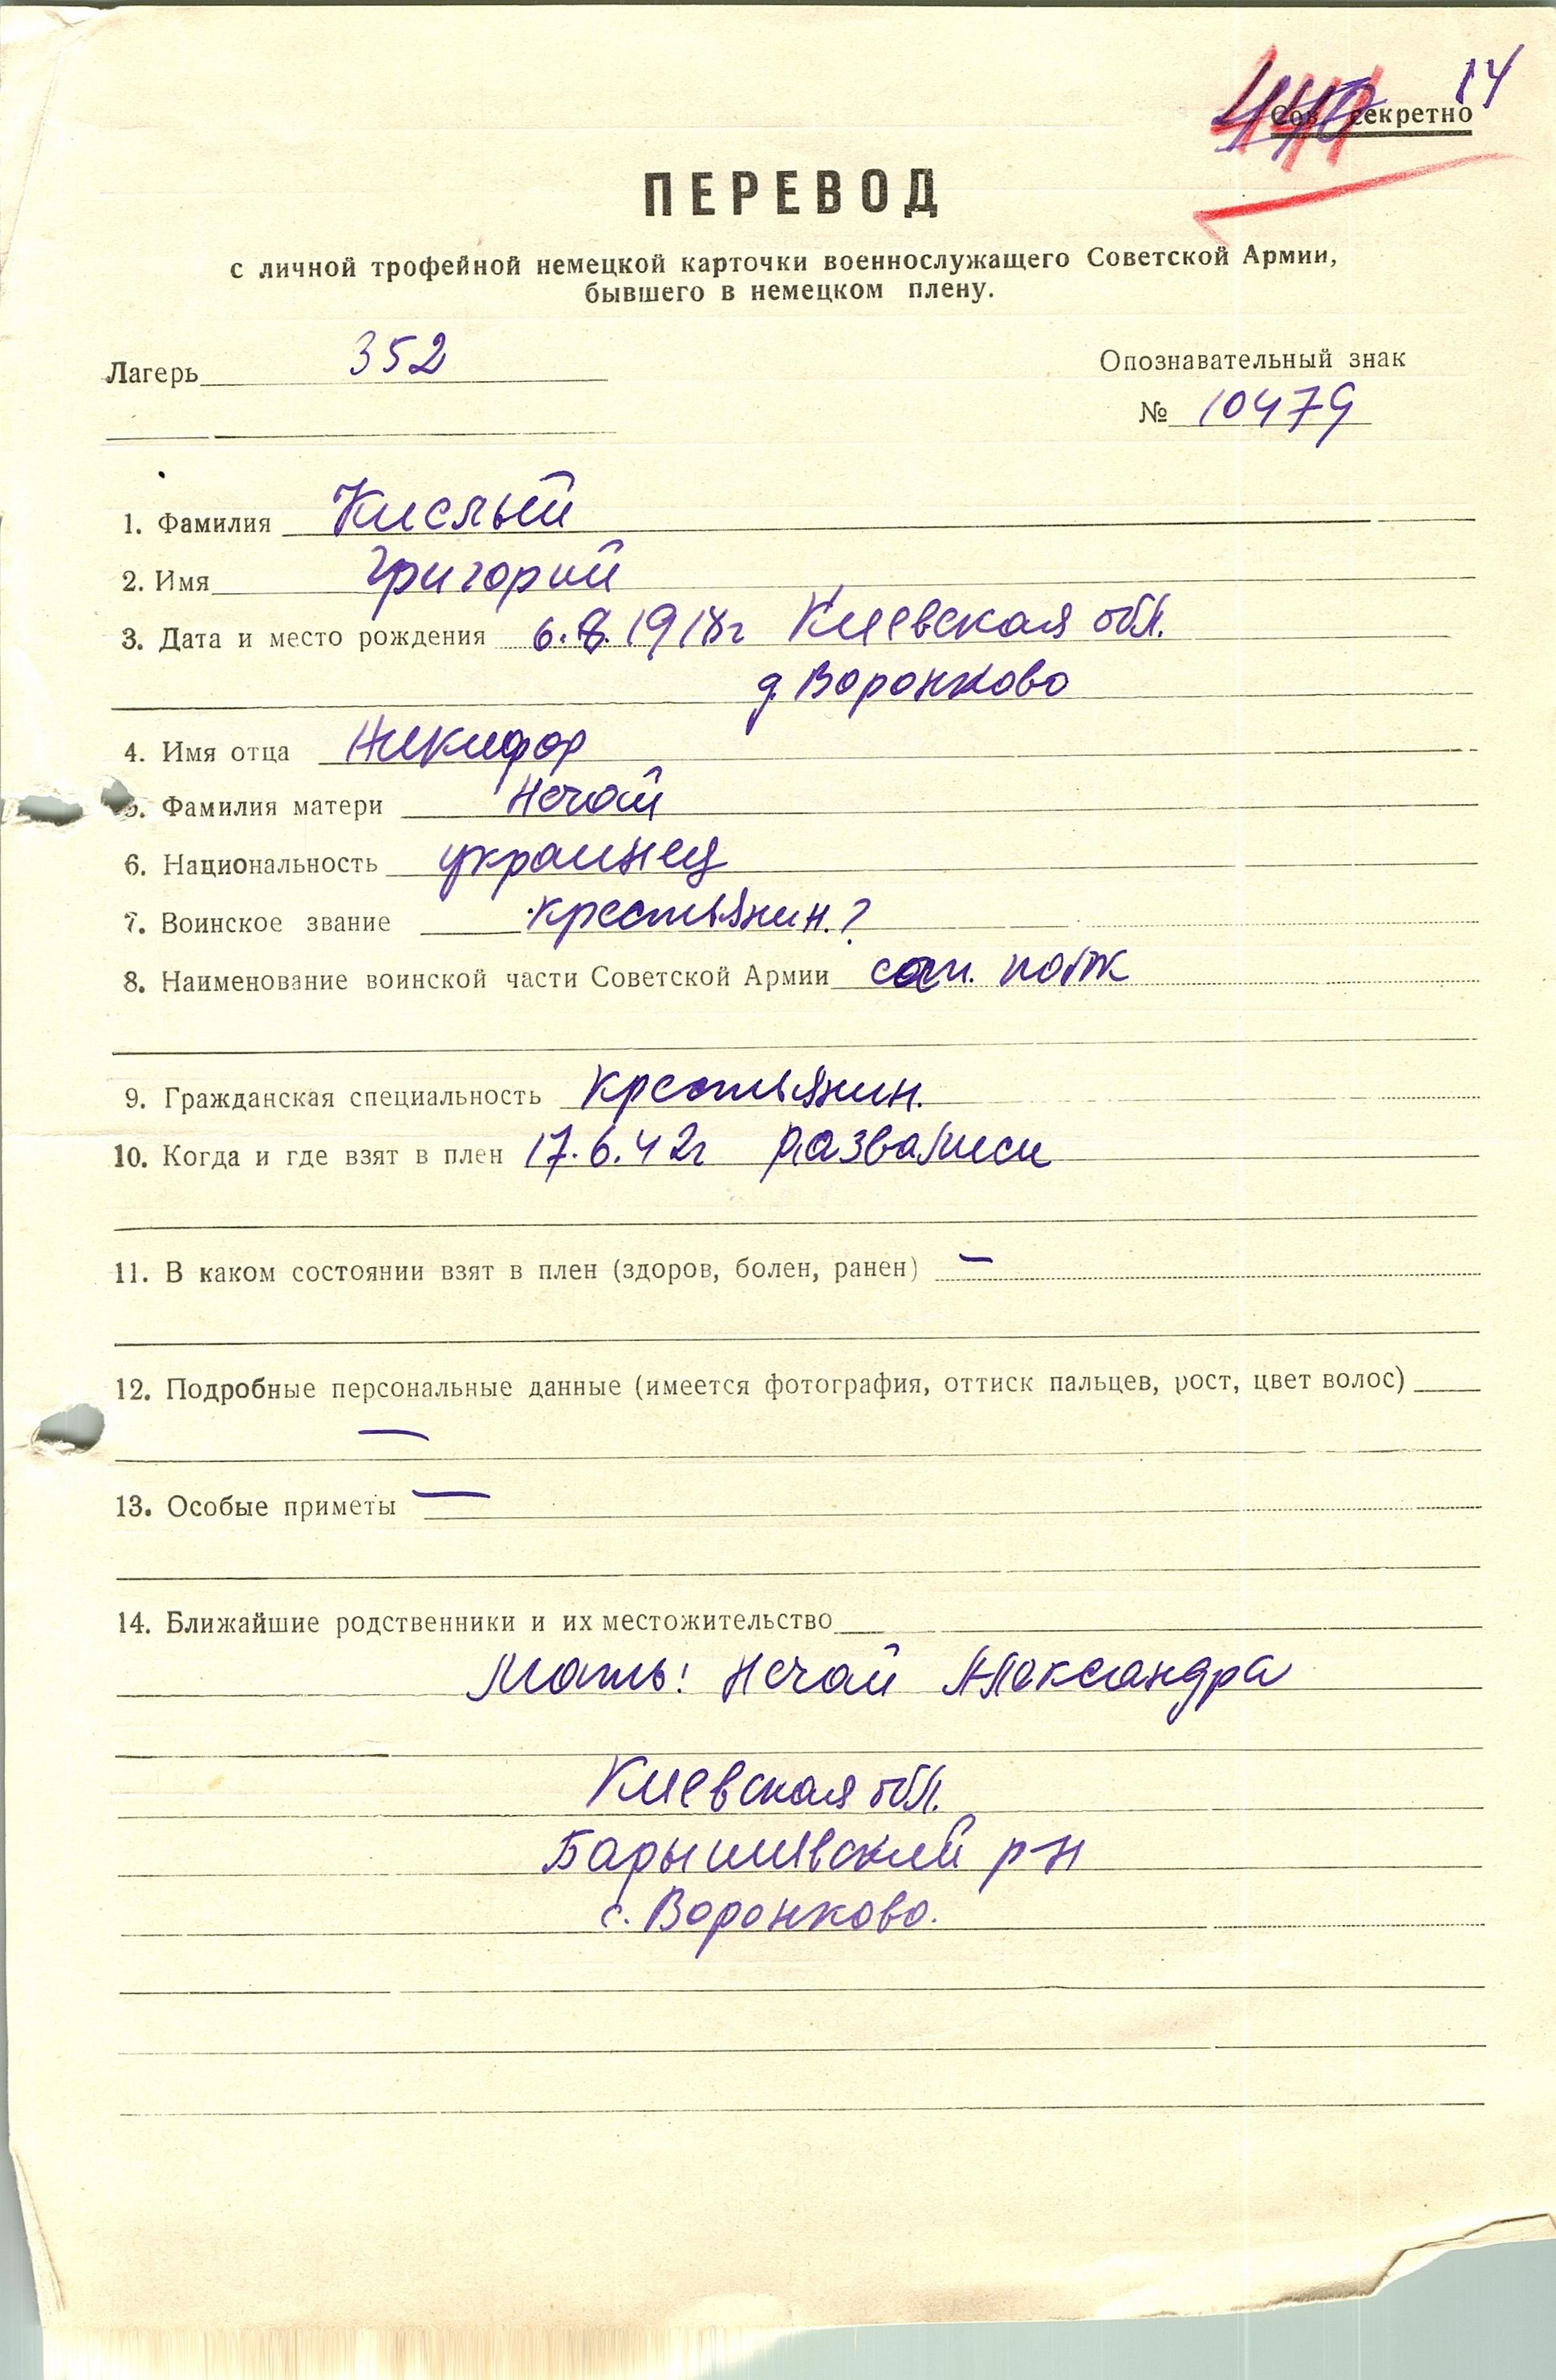 14
Сов. секретно
ПЕРЕВОД
с личной трофейной немецкой карточки военнослужащего Советской Армии,
бывшего в немецком плену.
Лагерь 352
Опознавательный знак
№ 10479
1. Фамилия Кислый
2. Имя Григорий
3. Дата и место рождения 6.8.1918г Киевская обл.
д. Воронково
4. Имя отца Никифор
5. Фамилия матери Нечай
6. Национальность украинец
7. Воинское звание крестьянин.?
8. Наименование воинской части Советской Армии
9. Гражданская специальность крестьянин.
10. Когда и где взят в плен 17.6.42г
11. В каком состоянии взят в плен (здоров, болен, ранен) —
12. Подробные персональные данные (имеется фотография, оттиск пальцев, рост, цвет волос)
—
13. Особые приметы —
14. Ближайшие родственники и их местожительство
Мать: Нечай Александра
Киевская обл.
Барышевский р-н
с. Воронково.